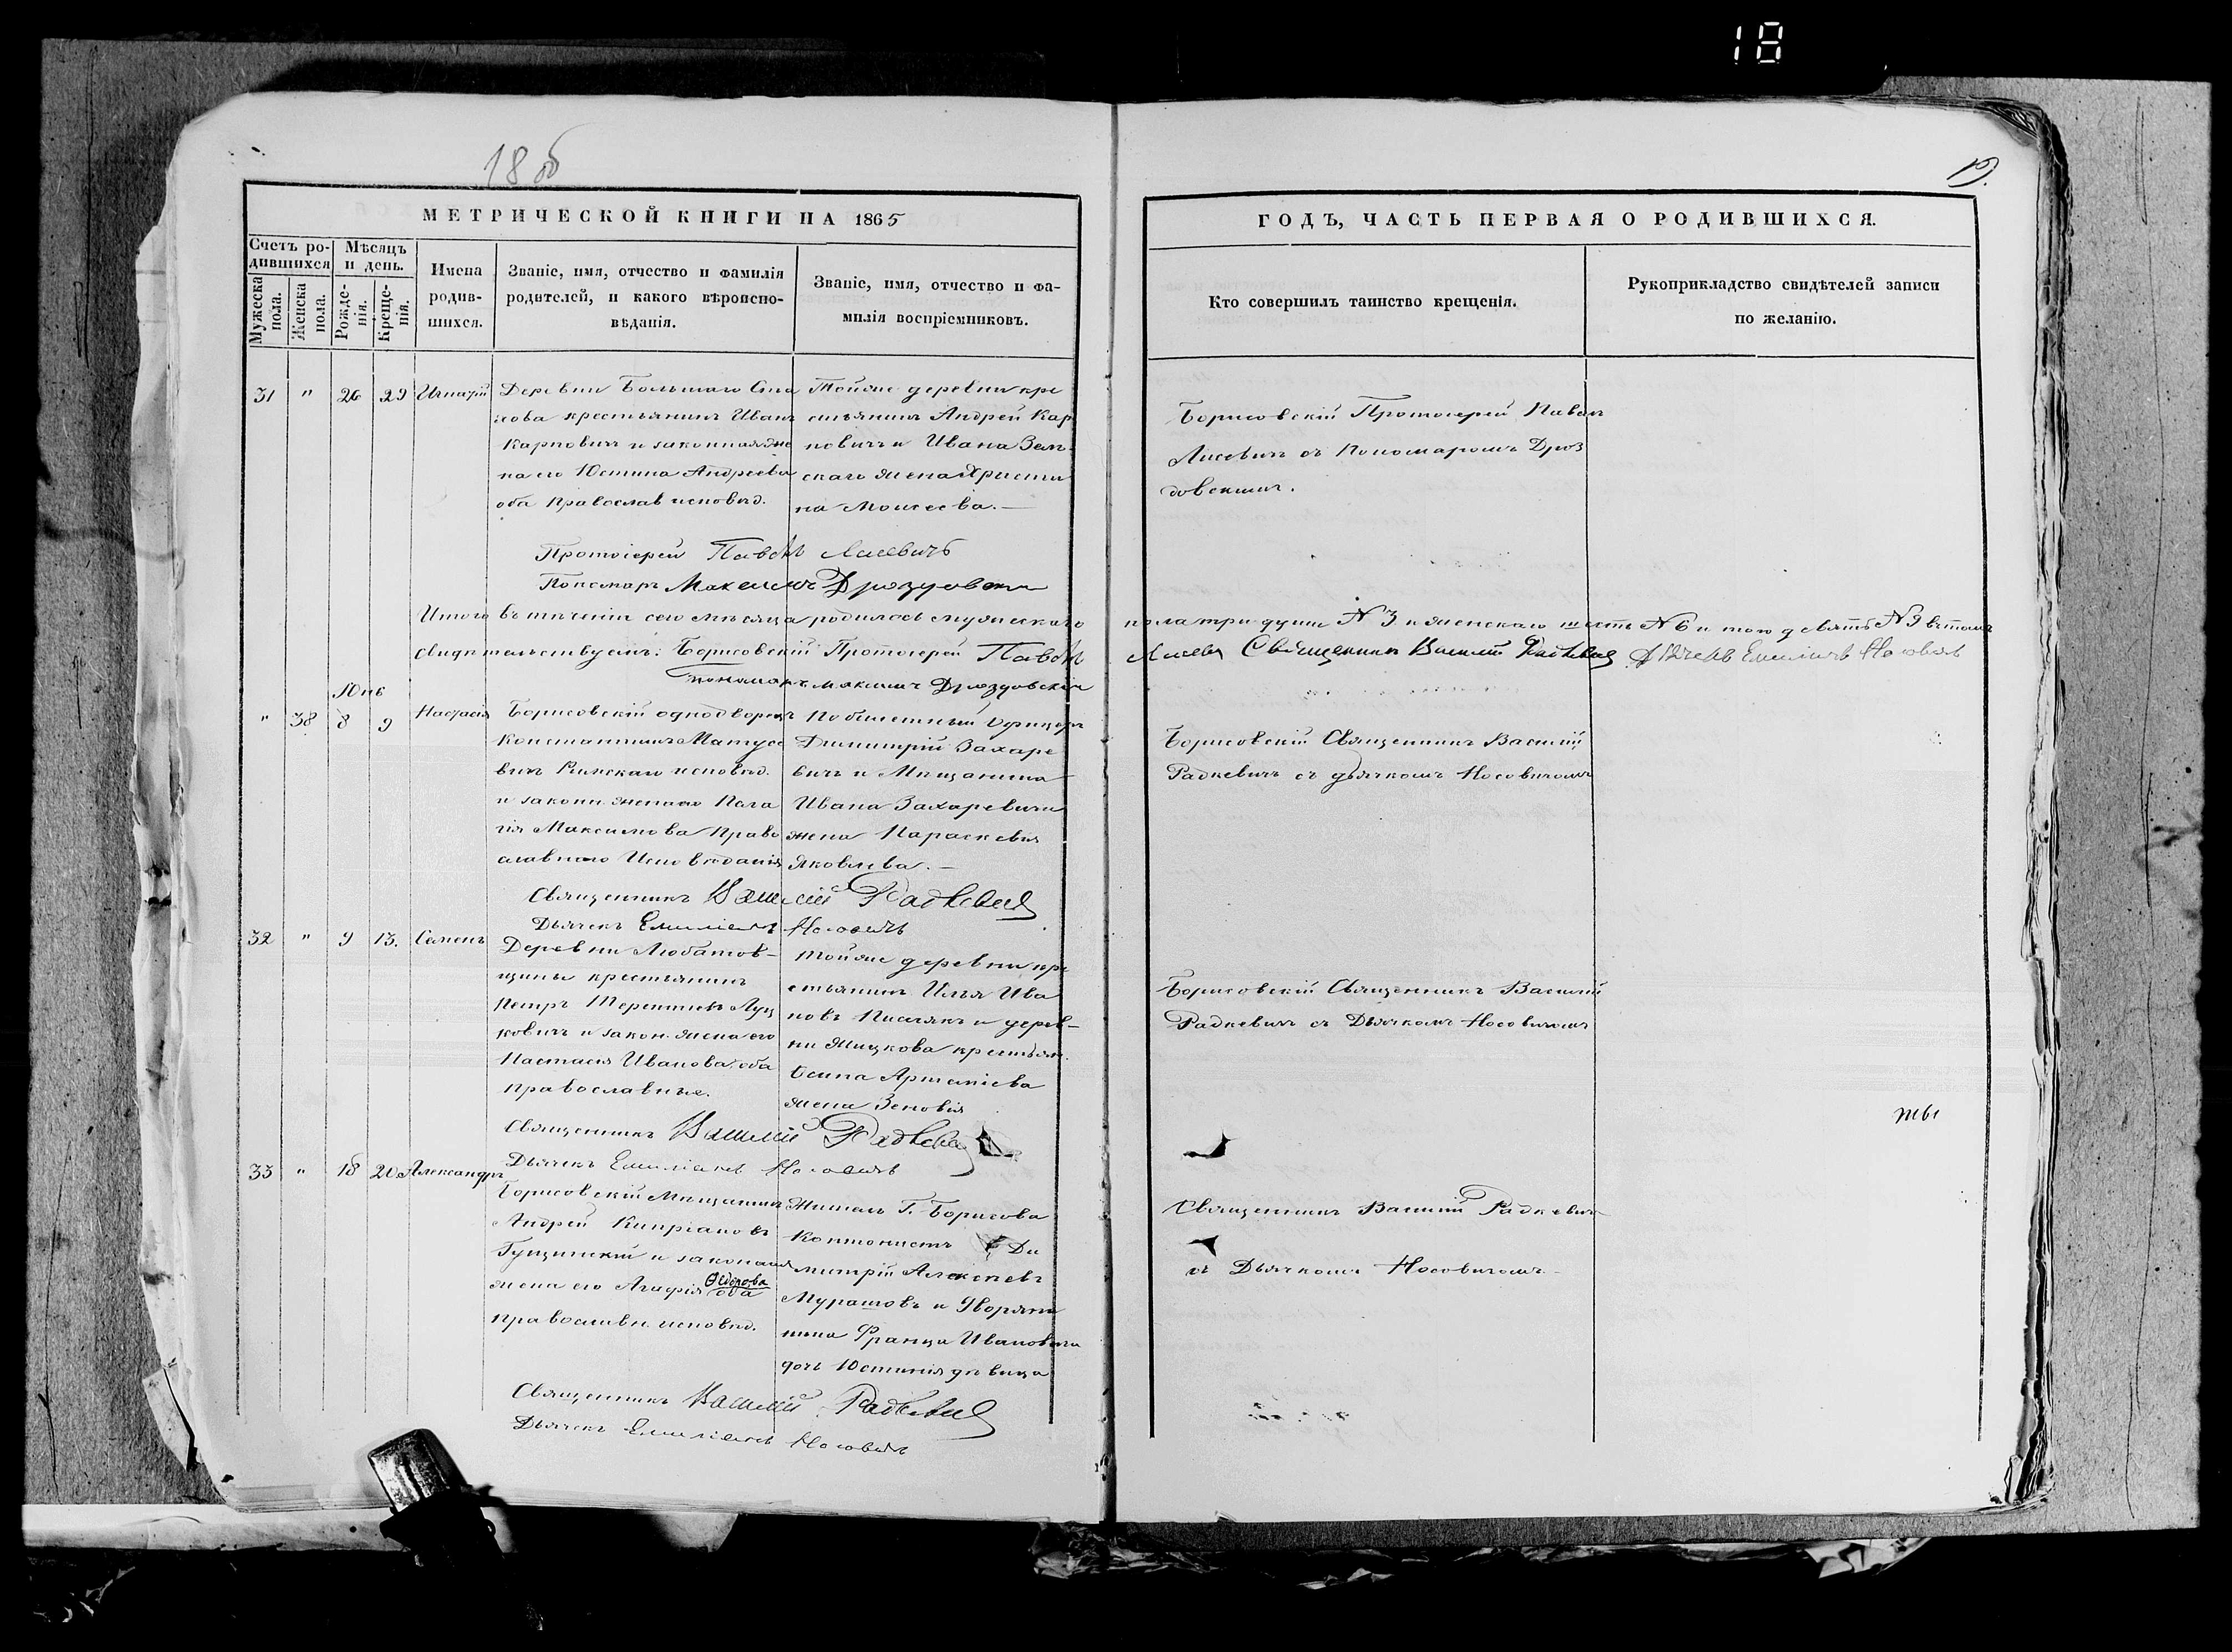 18
18 об
19.
МЕТРИЧЕСКОЙ КНИГИ НА 1865
ГОДЪ, ЧАСТЬ ПЕРВАЯ О РОДИВШИХСЯ.
Счетъ ро-
дившихся
Мужеска
пола.
Женска
пола.
Мѣсяцъ
и день.
Рожде-
нія.
Креще-
нія.
Имена
родив-
шихся.
Званіе, имя, отчество и фамилія
родителей, и какого вѣроиспо-
вѣданія.
Званіе, имя, отчество и фа-
милія воспріемниковъ.
Кто совершилъ таинство крещенія.
Рукоприкладство свидѣтелей записи
по желанію.
31 " 26 29 Игнатій
Деревни Большаго Ста
хова крестьянинъ Иванъ
Карповичъ и законная же
на его Юстина Андреева
оба православ исповѣд.
Тойже деревни кре
стьянинъ Андрей Кар
повичъ и Ивана
скаго жена Христи
на Моисеева.
Борисовскій Протоіерей Павелъ
Лисевичъ съ Пономаромъ Дроз
довскимъ.
Протоіерей Павелъ Лисевичъ
Пономарь Максимъ Дроздовскій
Итого въ теченіи сего мѣсяца родилось мужескаго пола три души № 3 и женскаго шесть № 6 и того девять № 9 въ томъ
свидѣтельствуемъ: Борисовскій Протоіерей Павелъ Лисевичъ Священникъ Василій Радкевичъ Дьячекъ Емиліанъ Носовичъ
Пономарь Максимъ Дроздовскій
Юнь
" 38 8 9 Настасія
Борисовскій однодворецъ
Константинъ Матусе
вичъ Римскаго исповѣд.
и законн. жена его Пела
гія Максимова Право
славнаго Исповѣданія
Димитрій Захаре
вичъ и Мѣщанина
Ивана Захаревича
жена Параскевія
Яковлева.
Борисовскій Священникъ Василій
Радкевичъ съ дьячкомъ Носовичомъ
Священникъ Василій Радкевичъ
Дьячекъ Емиліанъ Носовичъ
32 " 9 13. Семенъ
Деревни Любатов-
щины крестьянинъ
Петръ Терентіевъ Луц
ковичъ и закон. жена его
Настасія Иванова оба
православные.
тойже деревни кре
стьянинъ Илья Ива
новъ и дерев-
ни Жицкова крестьян.
Осипа Артеміева
жена Зеновія
Борисовскій Священникъ Василій
Радкевичъ съ Дьячкомъ Носовичомъ
Священникъ Василій Радкевичъ
Дьячекъ Емиліанъ Носовичъ
33 " 18 20 Александръ
Борисовскій Мѣщанинъ
Андрей Кипріановъ
Гущинскій и законная
жена его Агафія Федорова оба
православн. исповѣд.
Житель Г. Борисова
Кантонистъ Ди
митрій Алексѣевъ
Мурашовъ и Дворяни
нина Франца Ивановича
дочь Юстинія дѣвица
Священникъ Василій Радкевичъ
съ Дьячкомъ Носовичомъ
Священникъ Василій Радкевичъ
Дьячекъ Емиліанъ Носовичъ